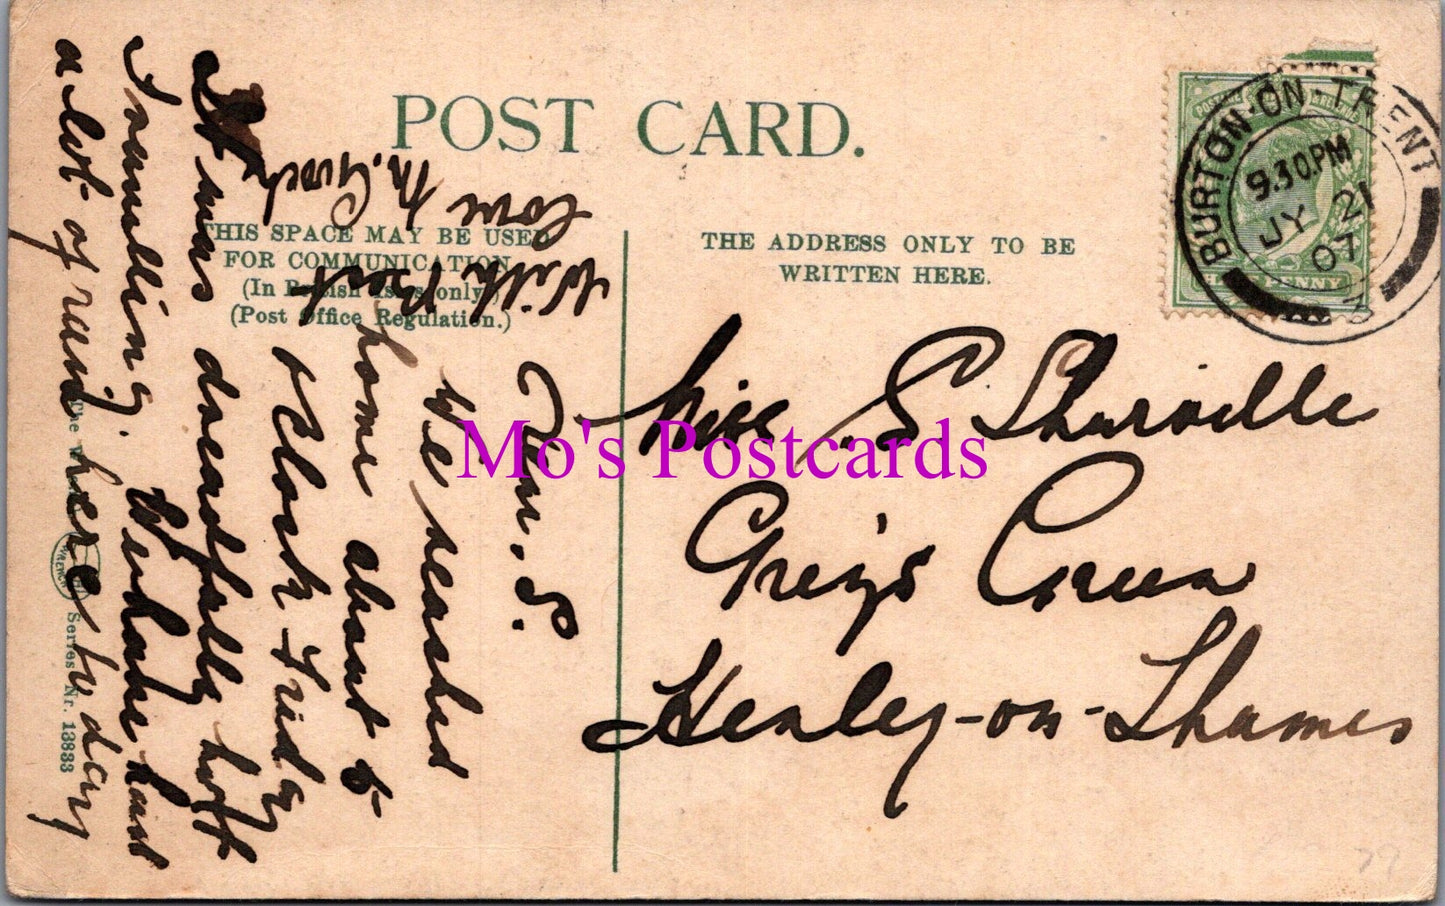 POST CARD.
THIS SPACE MAY BE USED
FOR COMMUNICATION
(In British Isles only.)
(Post Office Regulation.)
THE ADDRESS ONLY TO BE
WRITTEN HERE.
BURTON-ON-TRENT
9.30PM
JY 21
07
PENNY
Miss E Sharville
Greys Green
Henley-on-Thames
Dear S.
We reached
home about 5
o'clock Friday
It was dreadfully hot
Travelling. We have had
a lot of rain here today
With Best
love
Mo's Postcards
WRENCH
Series Nr. 13833